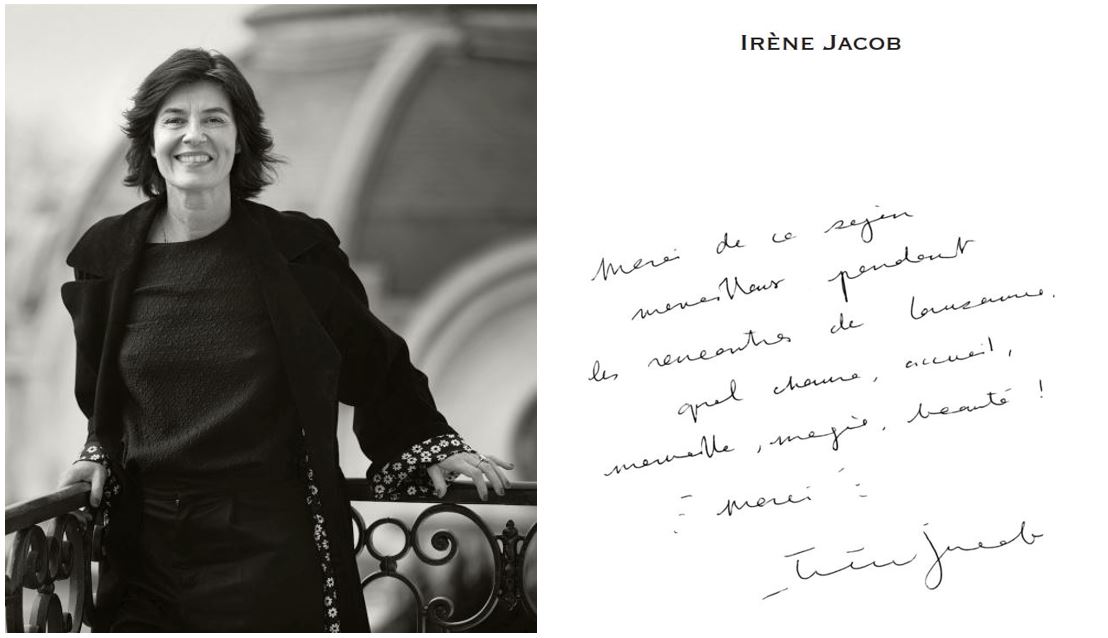 IRÈNE JACOB
Merci de ce séjour
merveilleux pendant
les rencontres de Lausanne.
quel charme, accueil,
merveille, magie, beauté !
= merci =
Irène Jacob